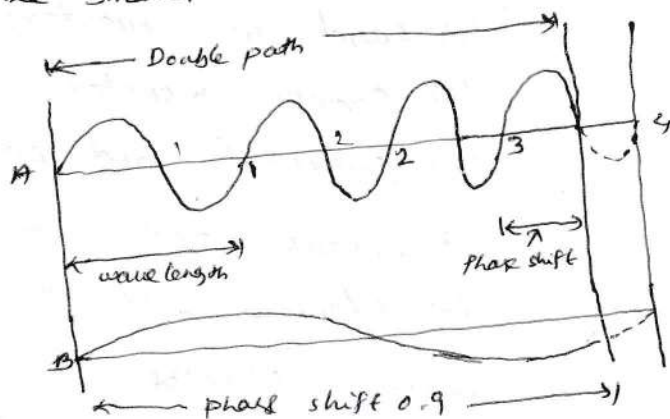 Double path
A 1 1 2 2 3 4
wave length
phase shift
B
phase shift 0.9